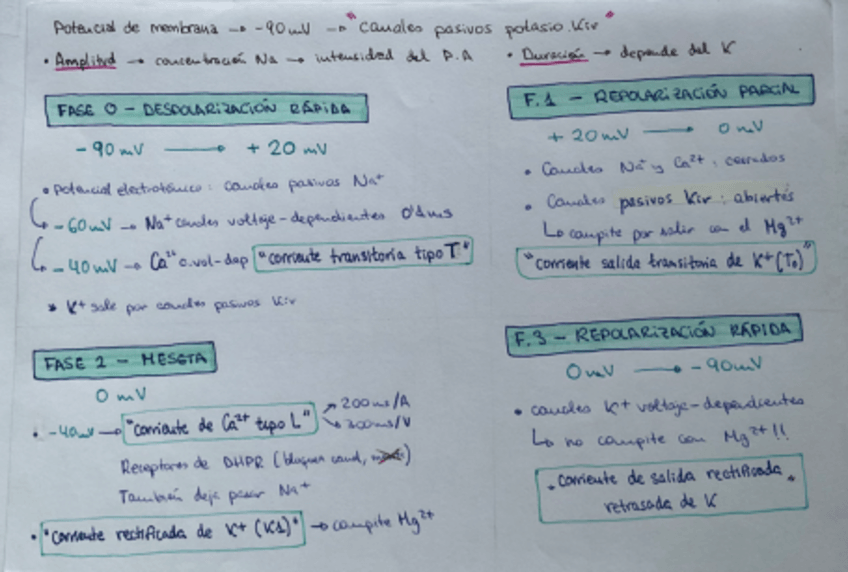 Potencial de membrana → -90mV → "canales pasivos potasio Kir"
• Amplitud → concentración Na → intensidad del P.A
• Duración → depende del K
FASE 0 - DESPOLARIZACIÓN RÁPIDA
-90 mV → +20 mV
• Potencial electrotónico: canales pasivos Na+
-60mV → Na+ canales voltaje-dependientes 0'4ms
-40mV → Ca2+ c.vol-dep "corriente transitoria tipo T"
* K+ sale por canales pasivos Kir
F.1 - REPOLARIZACIÓN PARCIAL
+20mV → 0mV
• Canales Na+ y Ca2+: cerrados
• Canales pasivos Kir: abiertos
↳ compite por salir con el Mg2+
"corriente salida transitoria de K+ (To)"
FASE 2 - MESETA
0 mV
• -40mV → "corriente de Ca2+ tipo L" ↗ 200ms/A
↘ 300ms/V
Receptores de DHPR (bloquea canal, )
También deja pasar Na+
• "Corriente rectificada de K+ (K1)" → compite Mg2+
F.3 - REPOLARIZACIÓN RÁPIDA
0mV → -90mV
• canales K+ voltaje-dependientes
↳ no compite con Mg2+!!
"Corriente de salida rectificada
retrasada de K"